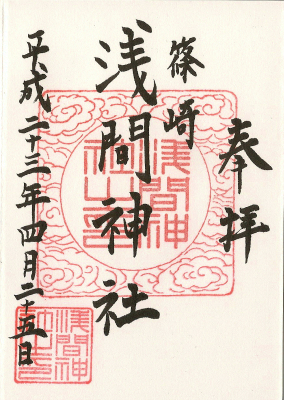 奉拝
篠崎
浅間神社
平成二十三年四月二十五日
浅間神
社之印
浅間神
社之印